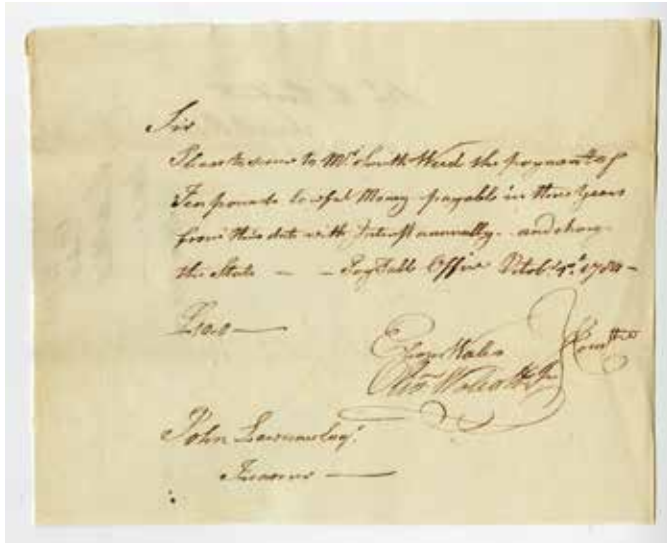 Sir
Please to secure to Mr. Smith Weed the payment of
Ten pounds Lawful Money payable in three years
from this date with Interest annually - and charge
the State - - Pay Table Office Octob 4th. 1780 -
£10.0 -
Eleazr Wales
Comttee
Olivr Wolcott Jr
John Lawrence Esqr.
Treasurer -